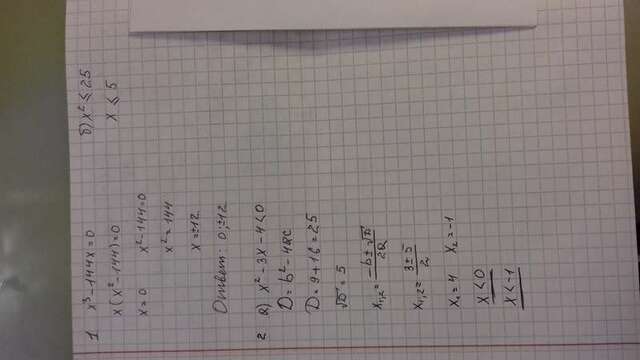 1 x³ - 144x = 0
x(x² - 144) = 0
x = 0 x² - 144 = 0
x² = 144
x = ±12
Ответ: 0; ±12
2 а) x² - 3x - 4 < 0
D = b² - 4ac
D = 9 + 16 = 25
√D = 5
x₁,₂ = (-b ± √D)/2a
x₁,₂ = (3 ± 5)/2
x₁ = 4 x₂ = -1
x < 0
x < -1
б) x² ≤ 25
x ≤ 5